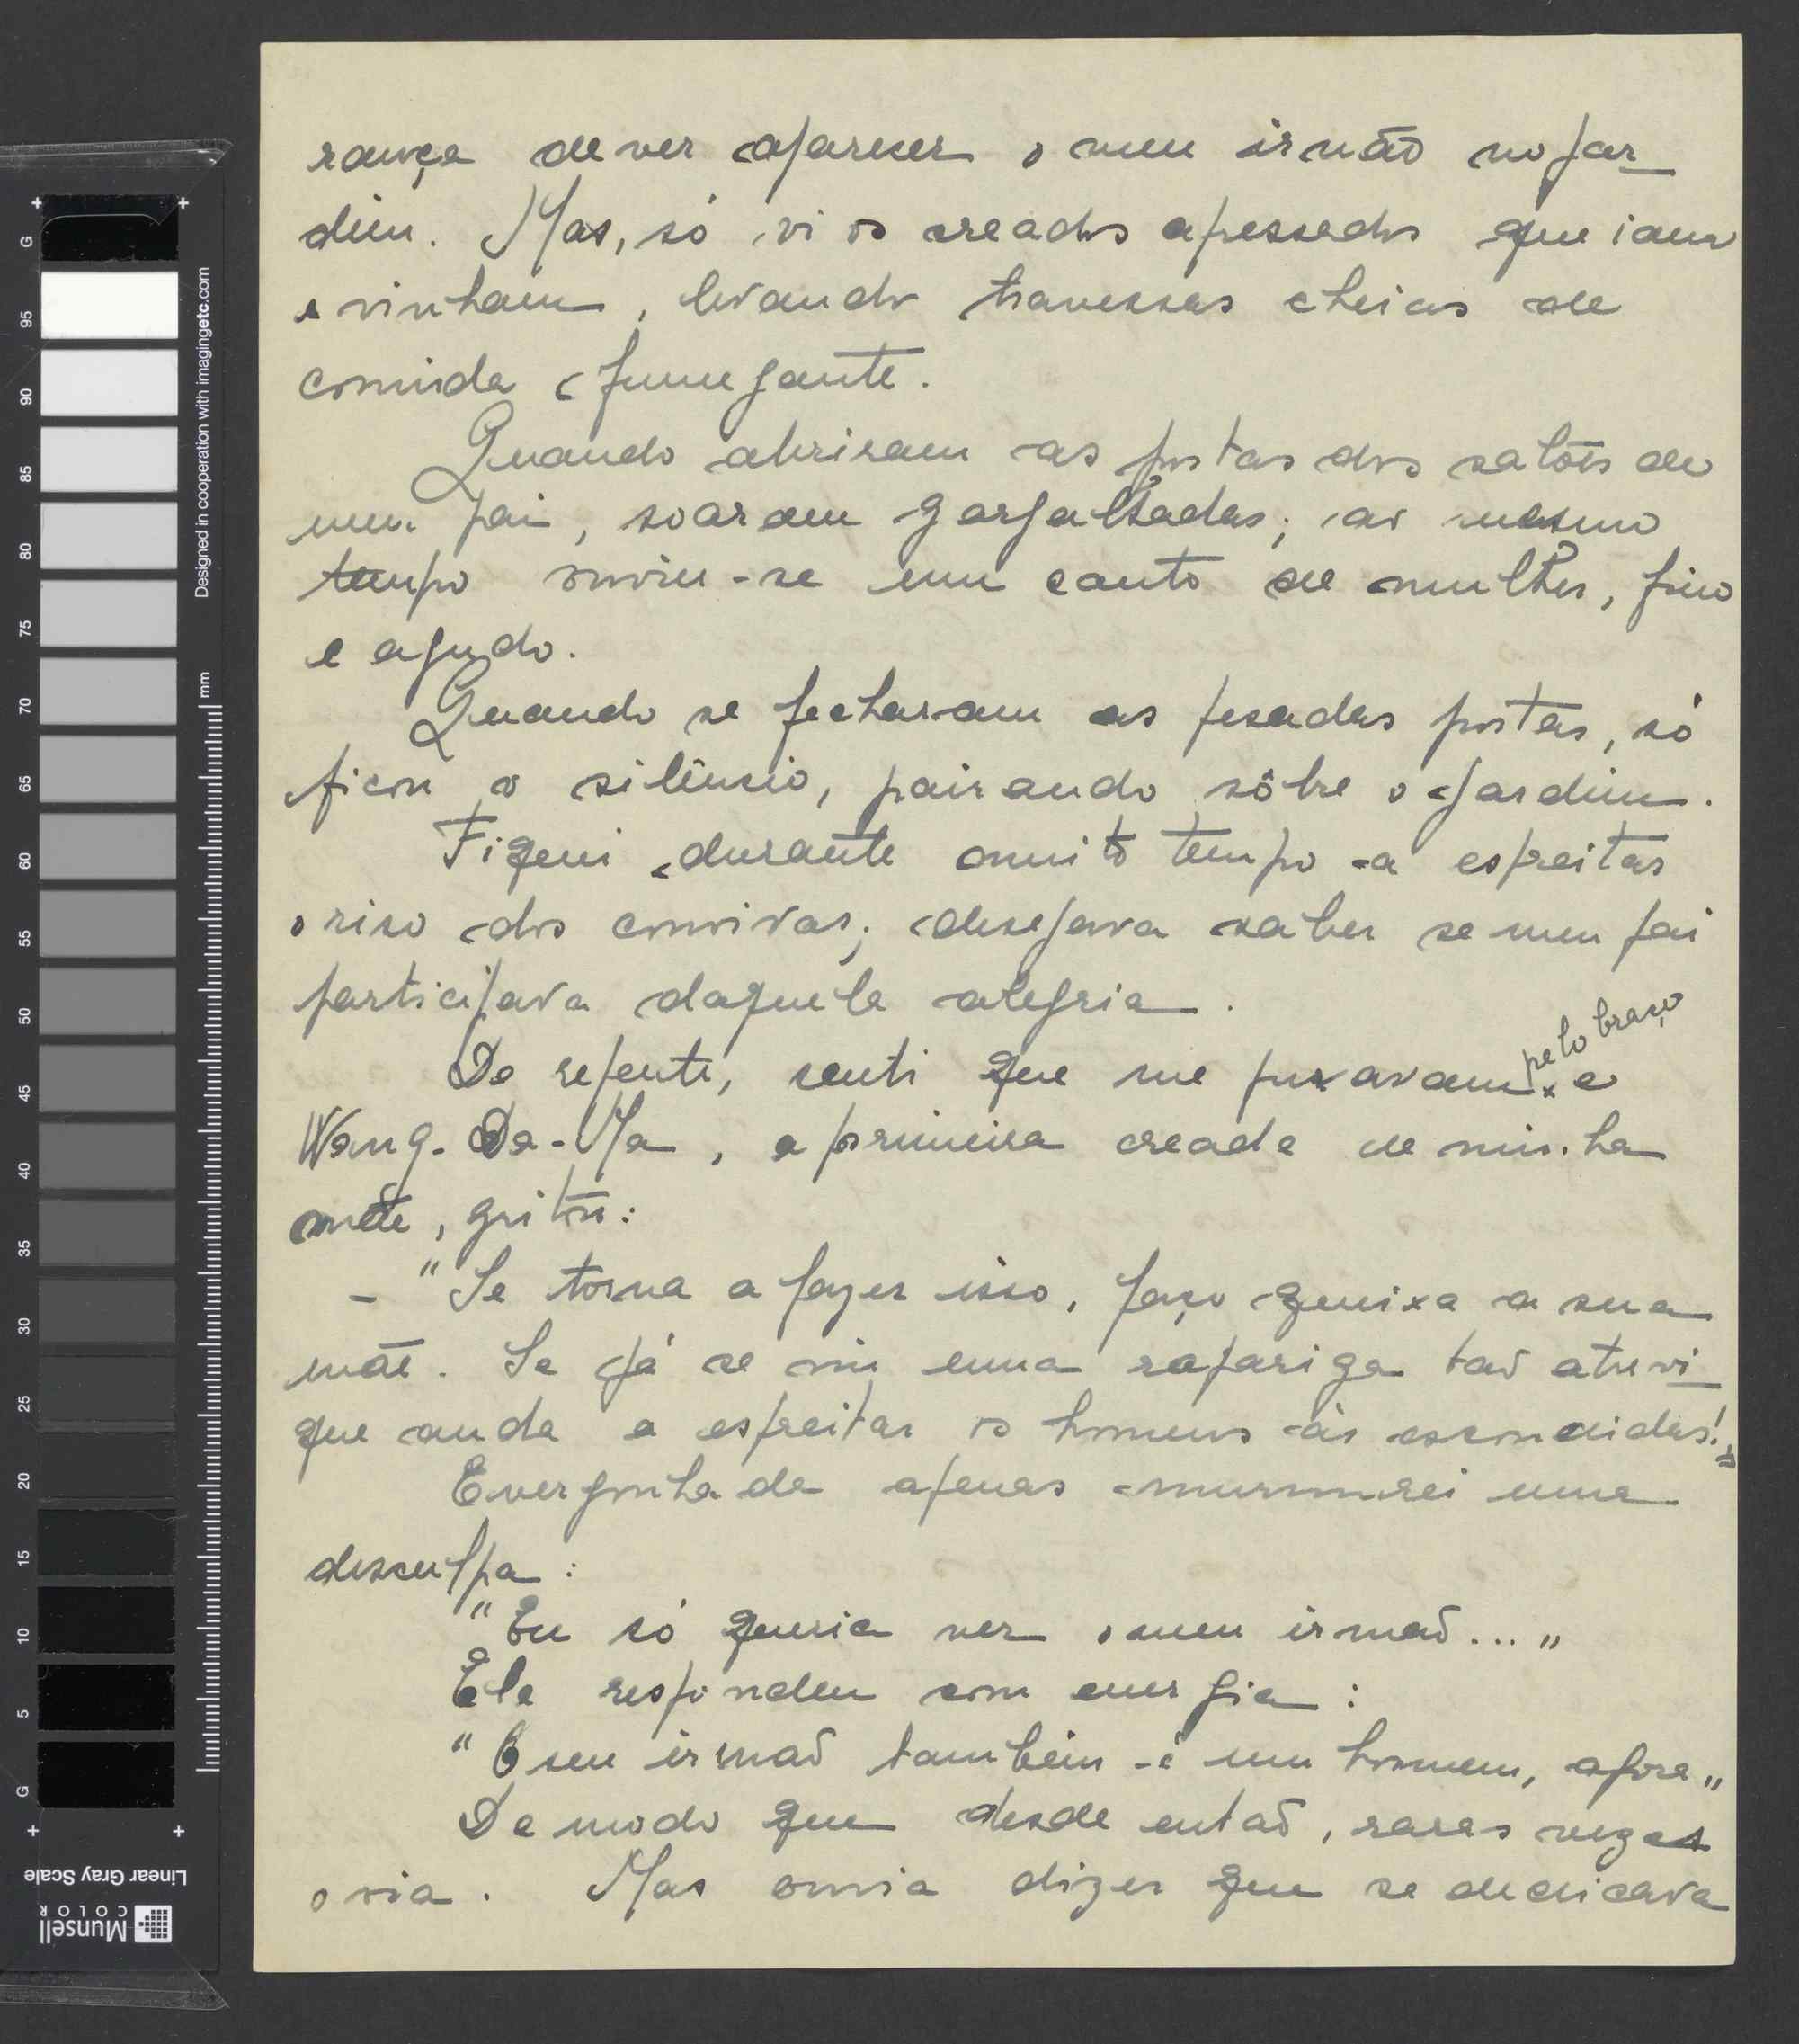 rança de ver aparecer o meu irmão no jar-
dim. Mas, só vi os creados apessados que iam
e vinham, levando travessas cheias de
comida fumegante.
Quando abriram as portas dos salões de
meu pai, soaram gargalhadas; ao mesmo
tempo ouviu-se um canto de mulher, fino
e agudo.
Quando se fecharam as pesadas portas, só
ficou o silêncio, pairando sôbre o jardim.
Fiquei durante muito tempo a espreitar
o riso dos convivas; desejava saber se meu pai
participava daquela alegria.
pelo braço
De repente, senti que me puxavam x e
Wang-Da-Ma, a primeira creada de minha
mãe, gritou:
- "Se torna a fazer isso, faço queixa a sua
mãe. Se já se viu uma rapariga tão atrevi-
que anda a espreitar os homens às escondidas!"
Envergonhada apenas murmurei uma
desculpa:
"Eu só queria ver o meu irmão..."
Ela respondeu com energia:
"O seu irmão também é um homem, agora"
De modo que desde então, raras vezes
o via. Mas ouvia dizer que se dedicava
G 95 90 85 80 75 70 65 60 55 50 45 40 35 30 25 20 15 10 5 G
mm
Designed in cooperation with imagingetc.com
Linear Gray Scale
Munsell
COLOR